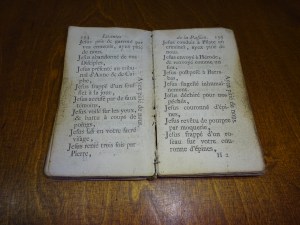 194 Litanies
Jésus pris & garrotté par
vos ennemis, ayez pitié
de nous.
Jésus abandonné de vos
disciples,
Jésus présenté en
Anne & de Caï-
phe,
Jésus frappé d'un souf-
flet à la joue,
Jésus accusé par de faux
témoins,
Jésus voilé sur les yeux,
& battu à coups de
poings,
Jésus en votre sacré
visage,
Jésus renié trois fois par
Pierre,
Ayez pitié de nous.
de la Passion. 195
Jésus conduit à Pilate en
criminel, ayez pitié de
nous.
Jésus à Hérode,
& renvoyé comme
fou,
Jésus postposé à Barra-
bas,
Jésus flagellé inhumai-
nement,
Jésus déchiré pour nos
péchés,
Jésus couronné d'épi-
nes,
Jésus revêtu de pourpre
par moquerie,
Jésus frappé d'un ro-
seau sur votre cou-
ronne d'épines,
Ayez pitié de nous.